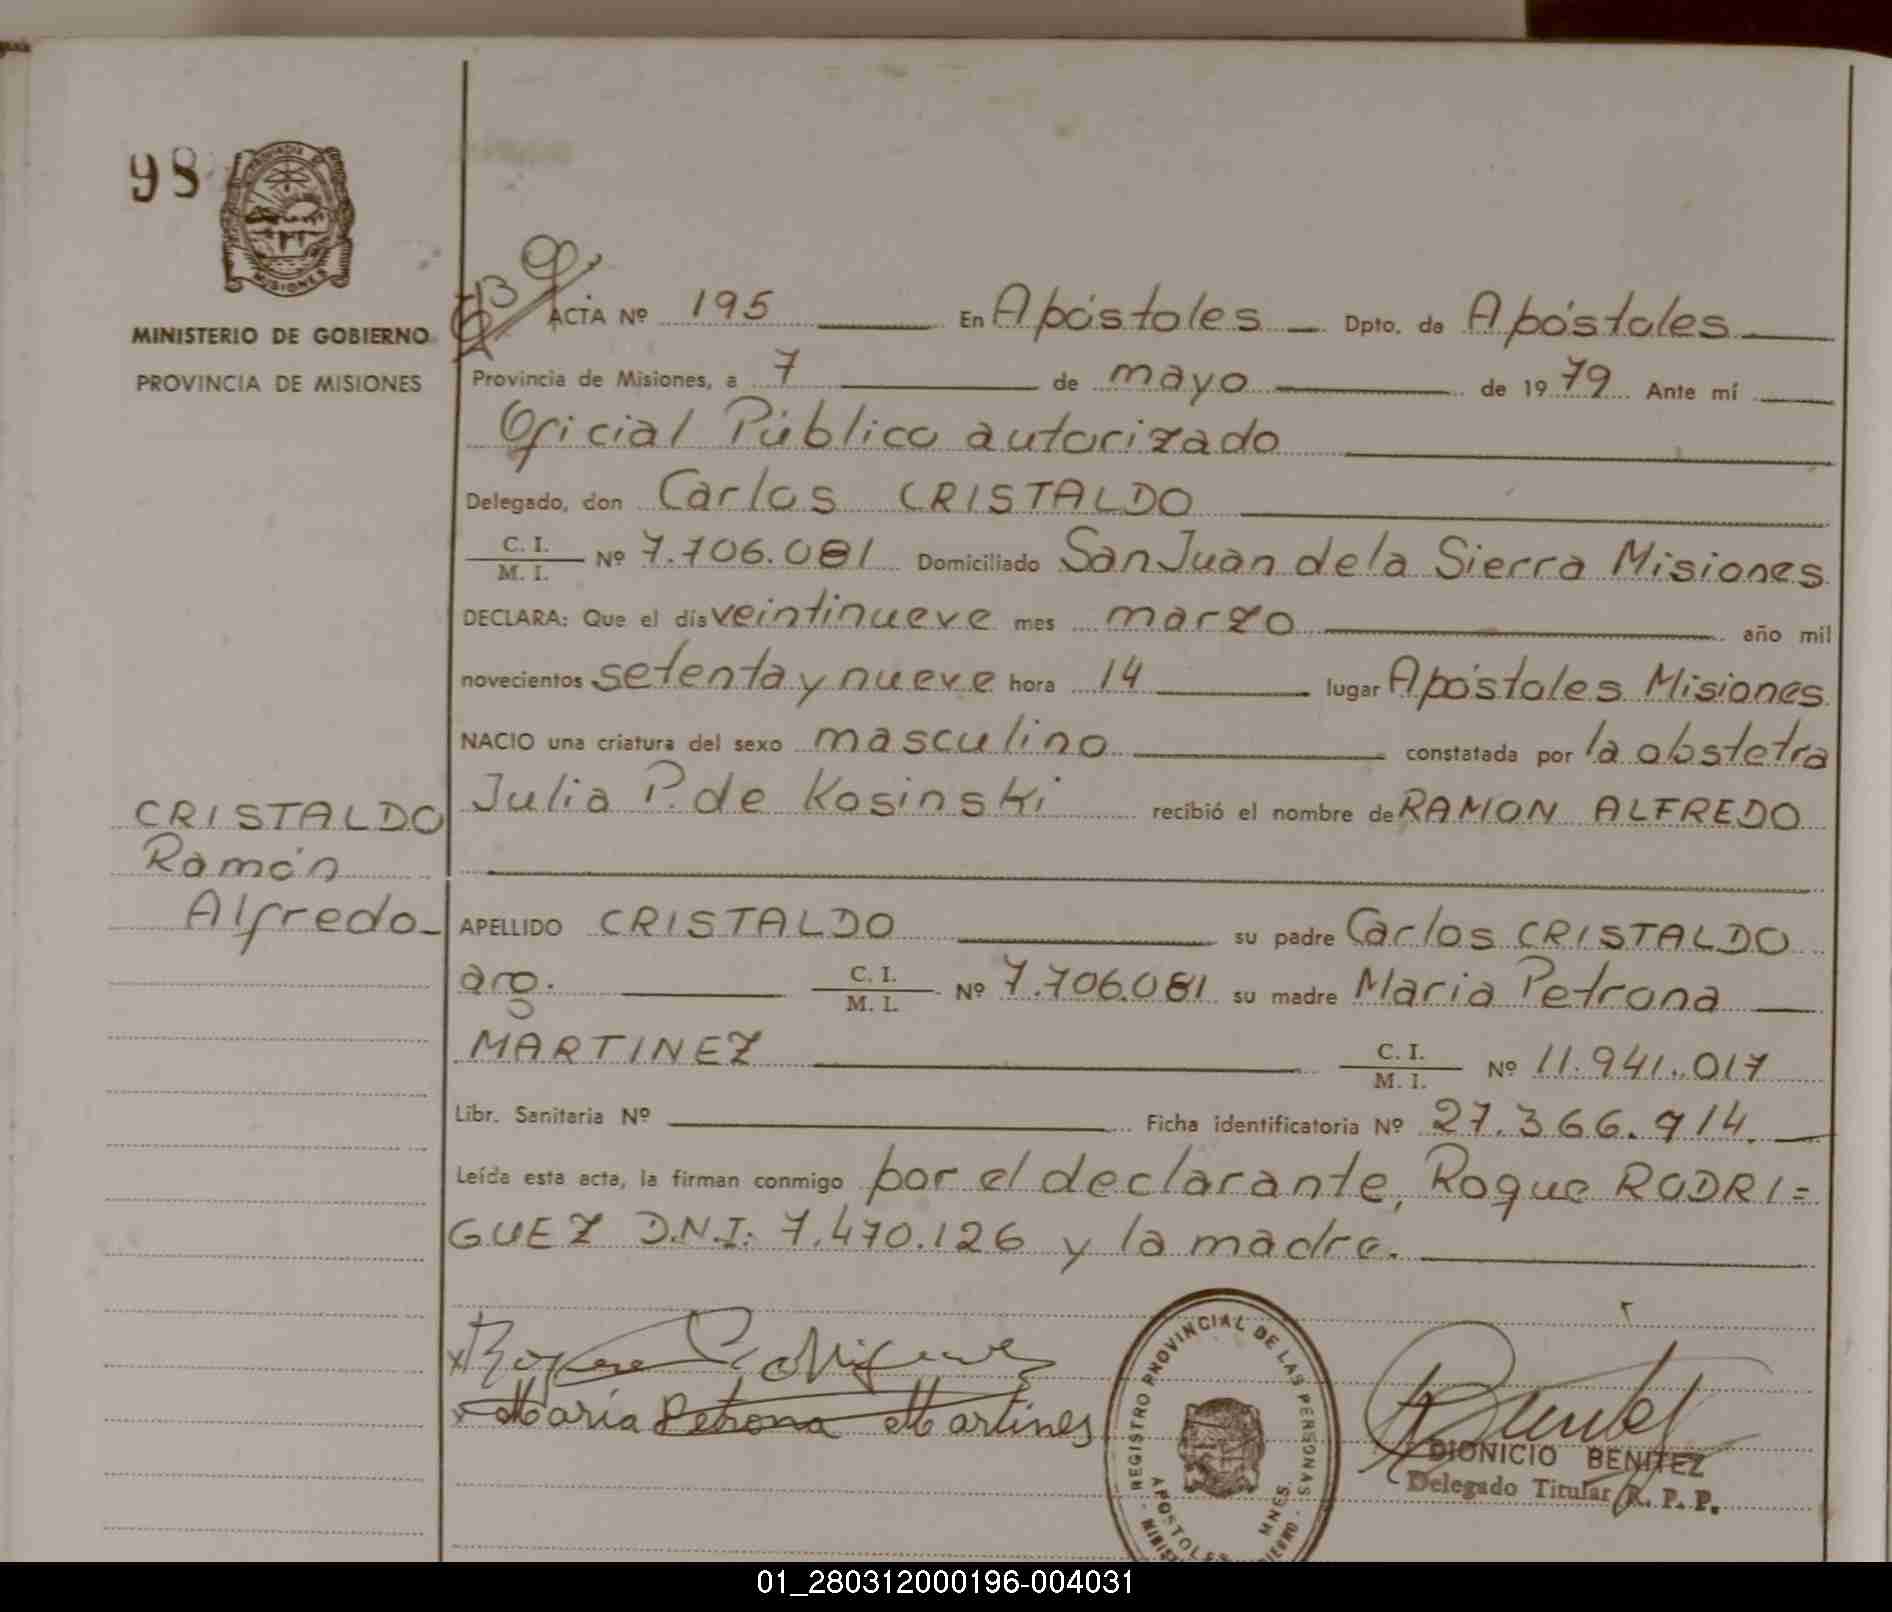 98
PROVINCIA DE
MISIONES
MINISTERIO DE GOBIERNO
PROVINCIA DE MISIONES
ACTA Nº 195 En Apóstoles Dpto. de Apóstoles
Provincia de Misiones, a 7 de mayo de 1979 Ante mí
Oficial Público autorizado
Delegado, don Carlos CRISTALDO
C. I. / M. I. Nº 7.706.081 Domiciliado San Juan de la Sierra Misiones
DECLARA: Que el día veintinueve mes marzo año mil
novecientos setenta y nueve hora 14 lugar Apóstoles Misiones
NACIO una criatura del sexo masculino constatada por la obstetra
Julia P. de Kosinski recibió el nombre de RAMON ALFREDO
CRISTALDO
Ramón
Alfredo
APELLIDO CRISTALDO su padre Carlos CRISTALDO
arg. C. I. / M. I. Nº 7.706.081 su madre Maria Petrona
MARTINEZ C. I. / M. I. Nº 11.941.017
Libr. Sanitaria Nº Ficha identificatoria Nº 27.366.914.
Leída esta acta, la firman conmigo por el declarante, Roque RODRI=
GUEZ D.N.I: 7.470.126 y la madre.
x Roque Rodriguez
x María Petrona Martines
REGISTRO PROVINCIAL DE LAS PERSONAS
APOSTOLES MNES.
DIONICIO BENITEZ
Delegado Titular R. P. P.
01_280312000196-004031